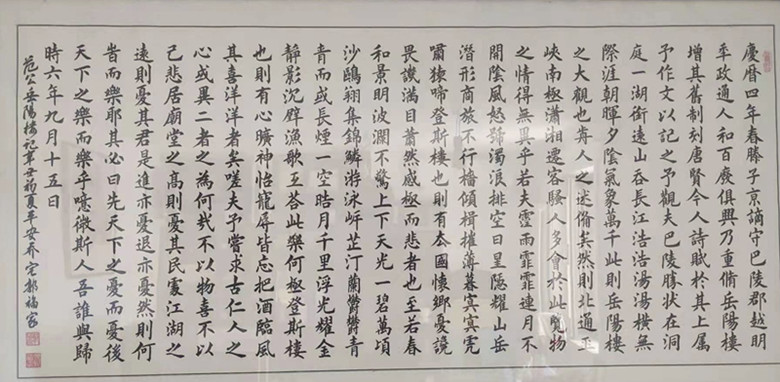 慶曆四年春滕子京謫守巴陵郡越明
年政通人和百廢俱興乃重脩岳陽樓
增其舊制刻唐賢今人詩賦於其上屬
予作文以記之予觀夫巴陵勝狀在洞
庭一湖銜遠山吞長江浩浩湯湯橫無
際涯朝暉夕陰氣象萬千此則岳陽樓
之大觀也前人之述備矣然則北通巫
峽南極瀟湘遷客騷人多會於此覽物
之情得無異乎若夫霪雨霏霏連月不
開陰風怒號濁浪排空日星隱耀山岳
潛形商旅不行檣傾楫摧薄暮冥冥虎
嘯猿啼登斯樓也則有去國懷鄉憂讒
畏譏滿目蕭然感極而悲者也至若春
和景明波瀾不驚上下天光一碧萬頃
沙鷗翔集錦鱗游泳岸芷汀蘭鬱鬱青
青而或長煙一空皓月千里浮光耀金
靜影沉璧漁歌互荅此樂何極登斯樓
也則有心曠神怡寵辱皆忘把酒臨風
其喜洋洋者矣嗟夫予嘗求古仁人之
心或異二者之為何哉不以物喜不以
己悲居廟堂之高則憂其民處江湖之
遠則憂其君是進亦憂退亦憂然則何
時而樂耶其必曰先天下之憂而憂後
天下之樂而樂乎噫微斯人吾誰與歸
時六年九月十五日
范公岳陽樓記辛丑初夏平安